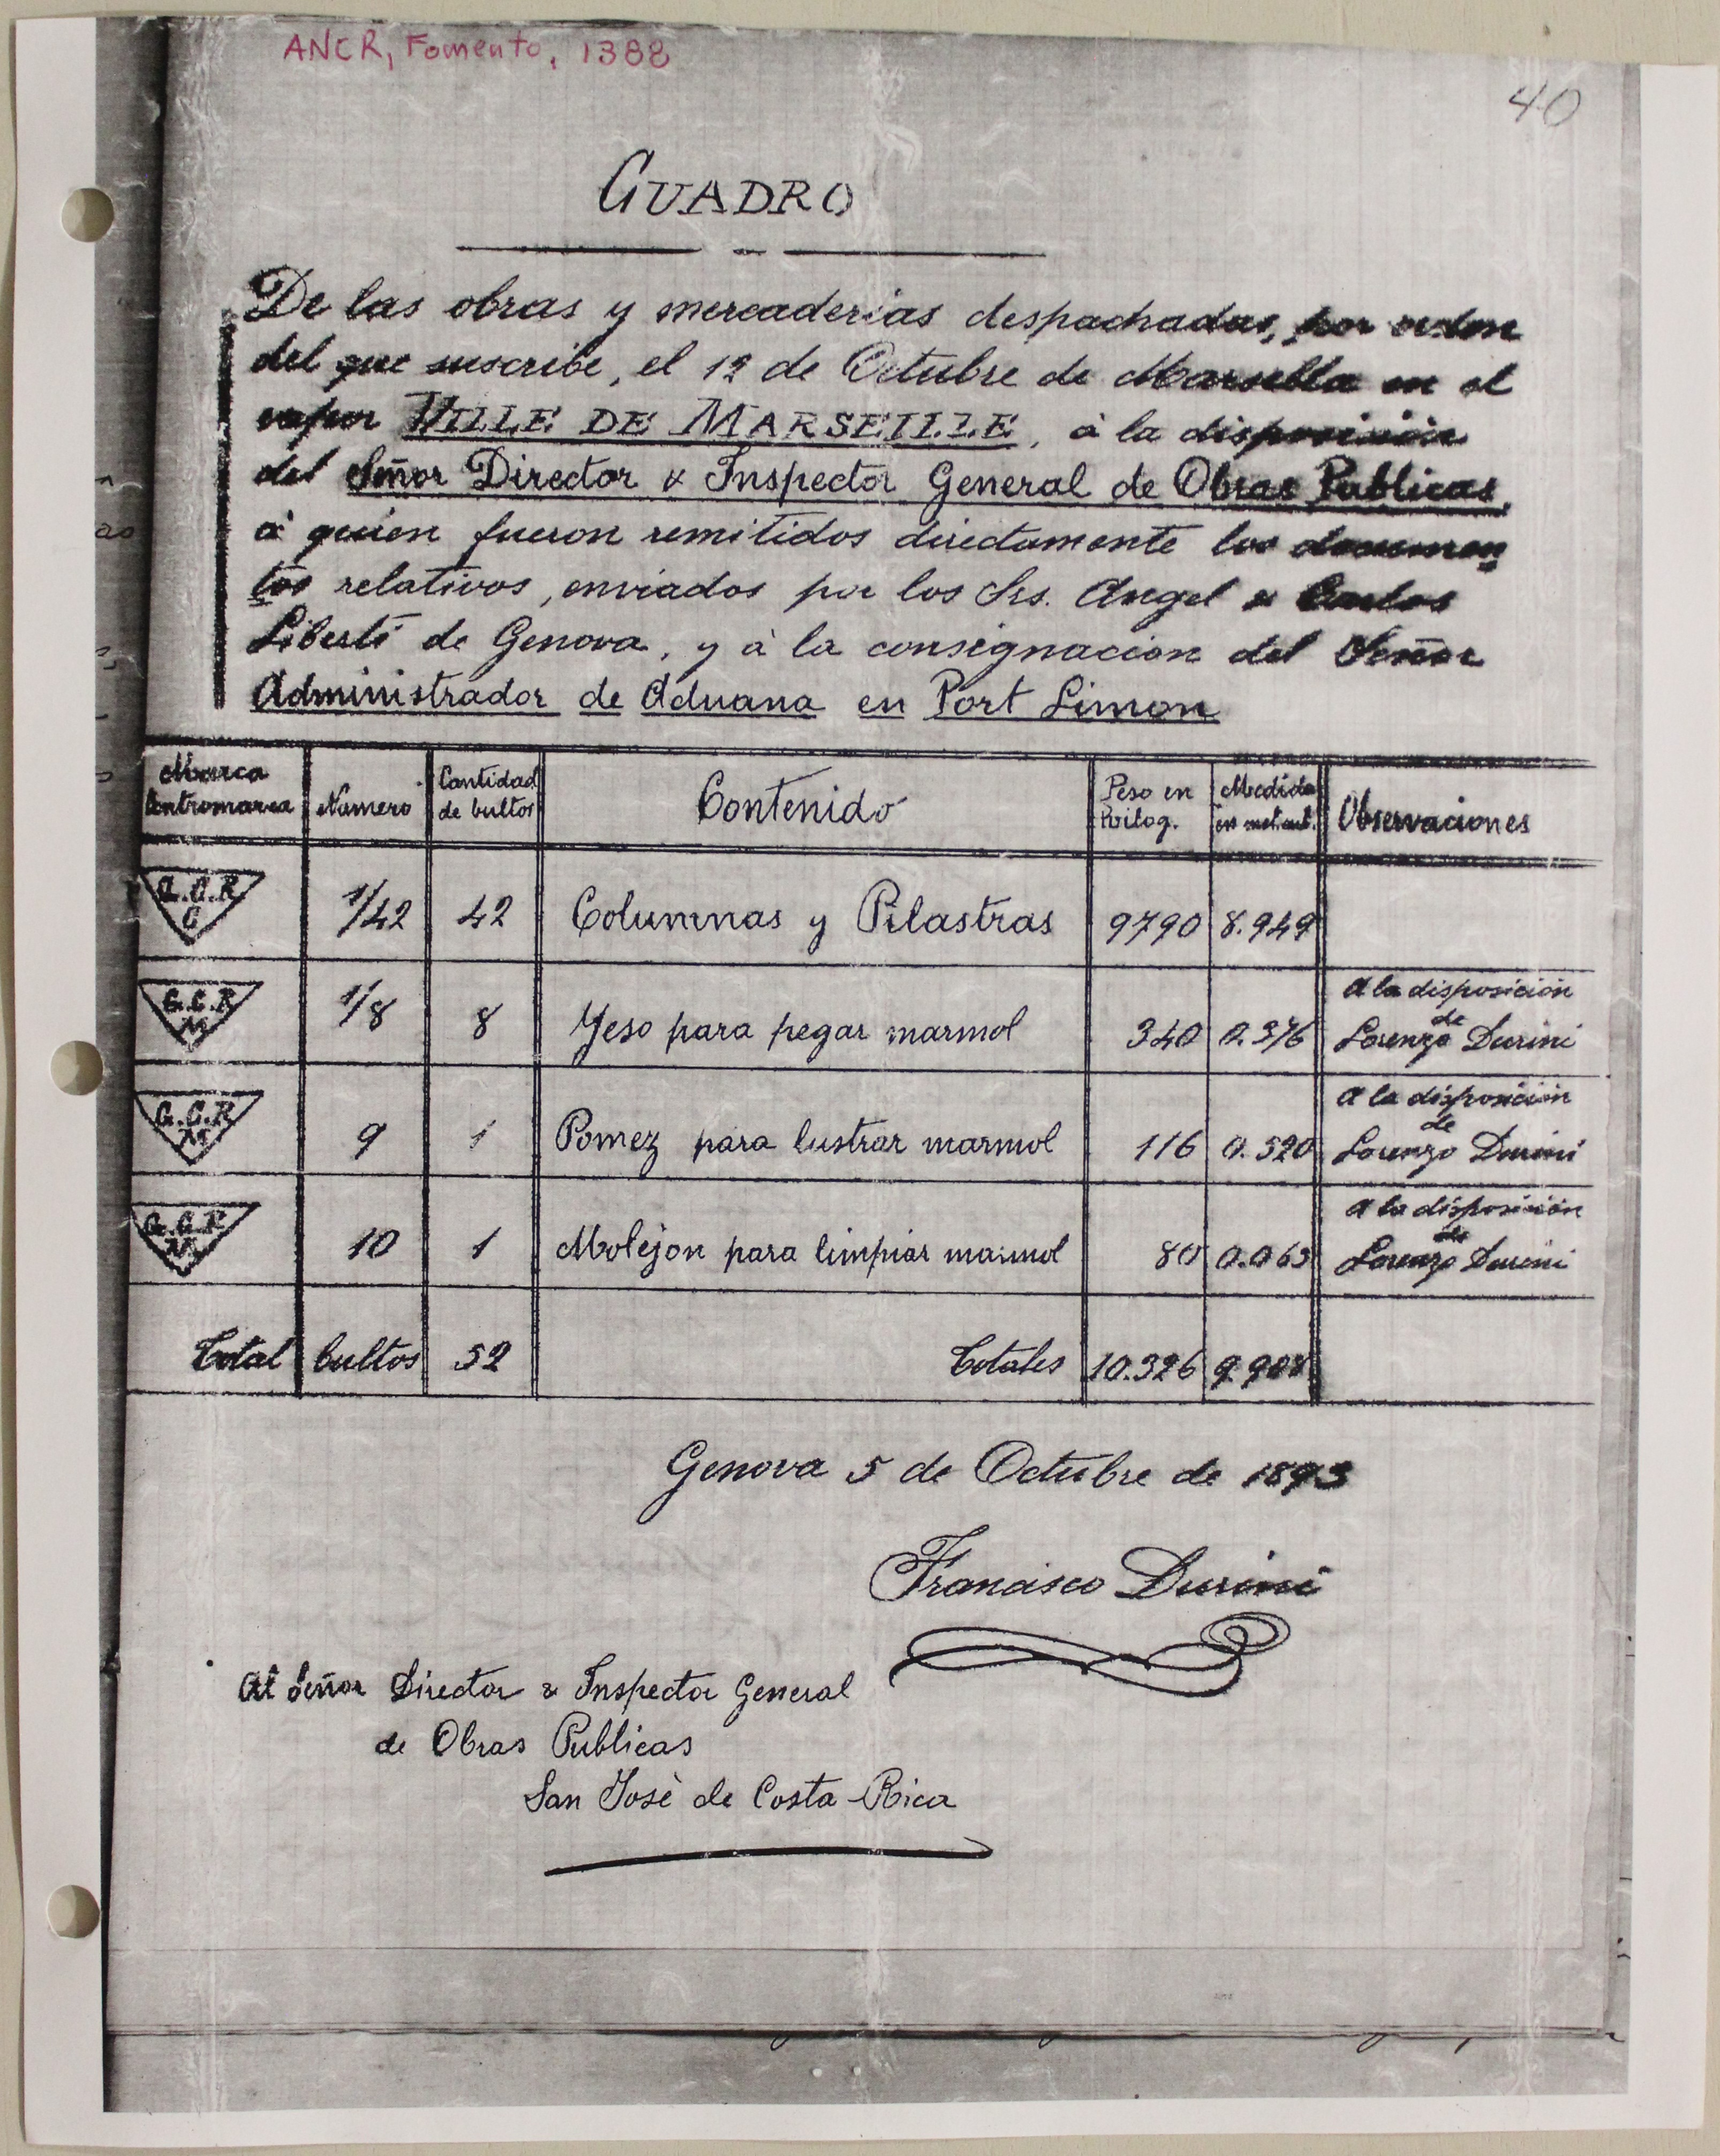 ANCR, Fomento, 1388
40
CUADRO
De las obras y mercaderias despachadas, por orden
del que suscribe, el 12 de Octubre de Marsella en el
vapor VILLE DE MARSEILLE, à la disposición
del Señor Director & Inspector General de Obras Publicas,
à quien fueron remitidos directamente los documen
tos relativos, enviados por los Srs. Angel & Carlos
Liberti de Genova, y à la consignacion del Señor
Administrador de Aduana en Port Limon
Marca Contromarca Numero Cantidad de bultos Contenido Peso en Kilog. Medida en met. cub. Observaciones
G.C.R C 1/42 42 Columnas y Pilastras 9790 8.949
G.C.R M 1/8 8 Yeso para pegar marmol 340 0.376 A la disposición de Lorenzo Durini
G.C.R M 9 1 Pomez para lustrar marmol 116 0.520 A la disposición de Lorenzo Durini
G.C.R M 10 1 Molejon para limpiar marmol 80 0.063 A la disposición de Lorenzo Durini
Total bultos 52 Totales 10.326 9.908
Genova 5 de Octubre de 1893
Francisco Durini
Al Señor Director & Inspector General
de Obras Publicas
San Josè de Costa-Rica